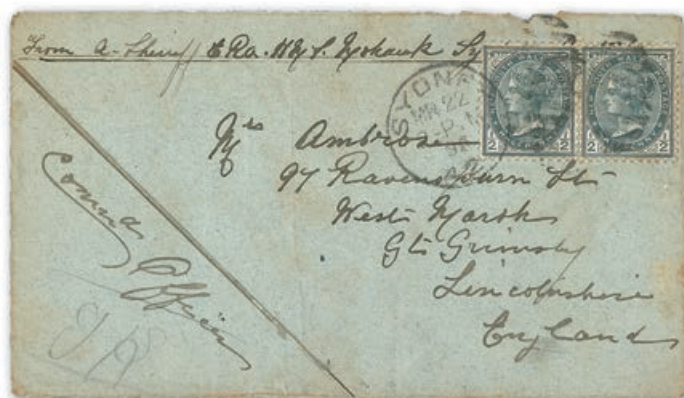 From A. Sherriff E.R.A. H.M.S. Mohawk Sy
SYDNEY
MR 22
Mrs Ambrose
97 Ravenspurn St
West Marsh
Gt Grimsby
Lincolnshire
England
Comndg
Officer